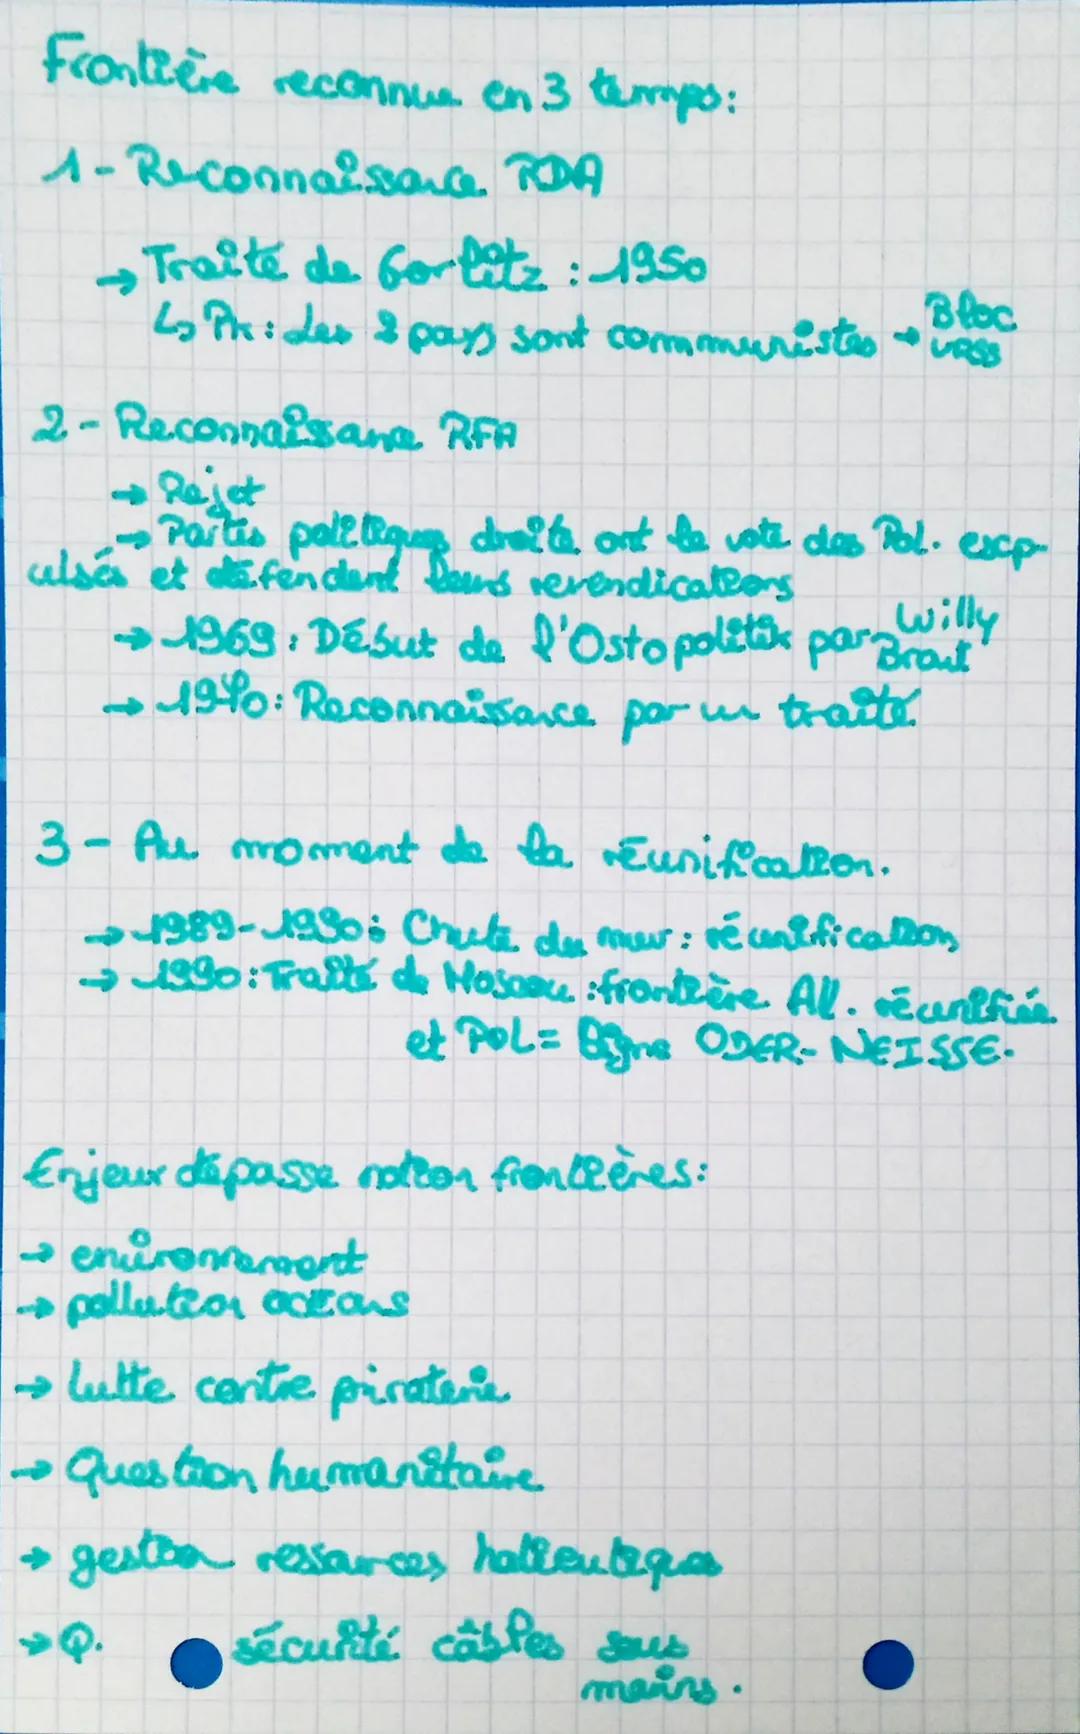 Frontière reconnue en 3 temps:
1- Reconnaissance RDA
→ Traité de Gorlitz : 1950
↳ Pk : des 2 pays sont communistes → Bloc URSS
2- Reconnaissance RFA
→ Rejet
→ Partis politiques droite ont le vote des Pol. exp-
ulsés et défendent leurs revendications
→ 1969 : Début de l'Ostopolitik par Willy Brant
→ 1970 : Reconnaissance par un traité
3- Au moment de la réunification.
→ 1989-1990 : Chute du mur : réunification
→ 1990 : Traité de Moscou : frontière All. réunifiée
et POL = ligne ODER-NEISSE.
Enjeux dépasse notion frontières:
→ environnement
→ pollution océans
→ lutte contre piraterie
→ Question humanitaire
→ gestion ressources halieutiques
→ Q. sécurité câbles sous
marins.